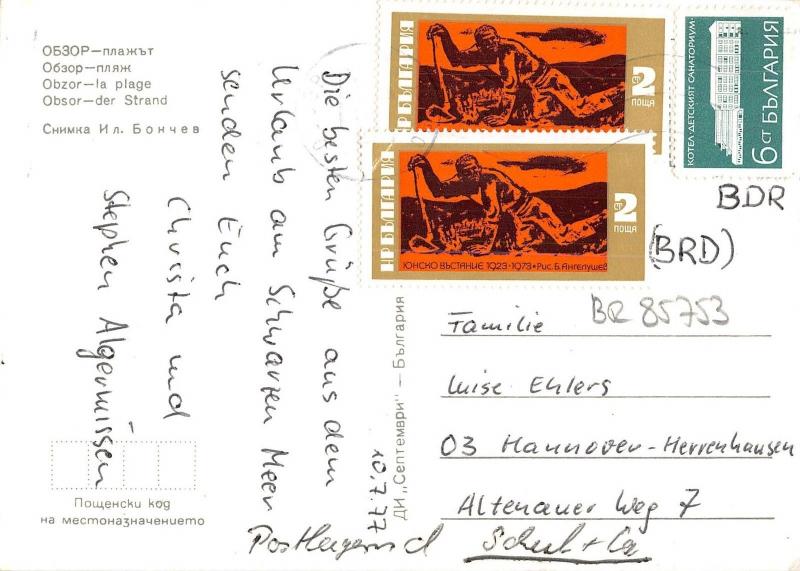 ОБЗОР—плажът
Обзор—пляж
Obzor—la plage
Obsor—der Strand
Снимка Ил. Бончев
Die besten Grüße aus dem
Urlaub am Schwarzen Meer
senden Euch
Christa und
Stephen Algermissen
10.7.77
Пощенски код
на местоназначението
ДИ „Септември" — България
НР БЪЛГАРИЯ
2 СТ
ПОЩА
НР БЪЛГАРИЯ
2 СТ
ПОЩА
ЮНСКО ВЪСТАНИЕ 1923·1973 • Рис. Б. Ангелушев
КОТЕЛ-ДЕТСКИЯТ САНАТОРИУМ
6 СТ БЪЛГАРИЯ
BDR
(BRD)
BR 85753
Familie
Luise Ehlers
03 Hannover-Herrenhausen
Altenauer Weg 7
Postlagernd